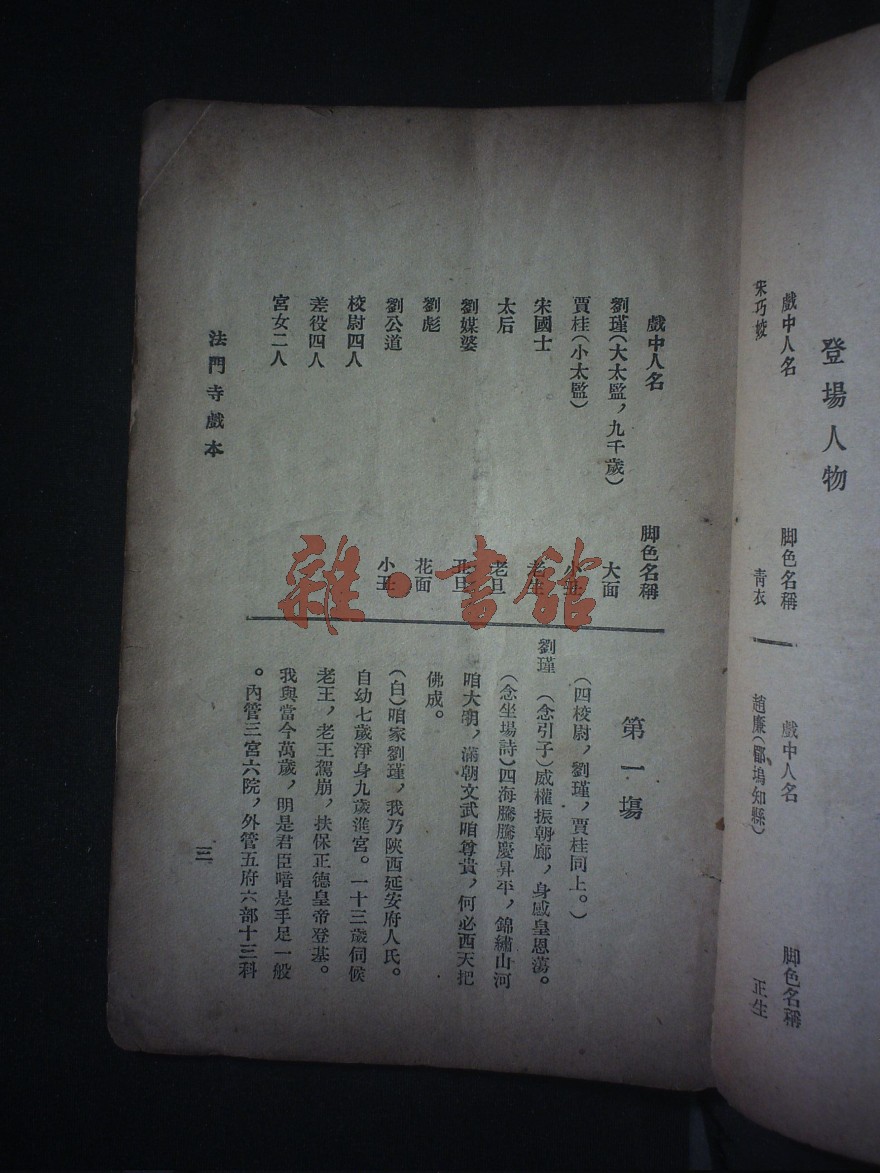 登場人物
戲中人名
脚色名稱
戲中人名
脚色名稱
宋巧姣
青衣
趙廉(郿塢知縣)
正生
戲中人名
脚色名稱
劉瑾(大太監,九千歲)
大面
賈桂(小太監)
小丑
宋國士
老生
太后
老旦
劉媒婆
丑旦
劉彪
花面
劉公道
小丑
校尉四人
差役四人
宮女二人
第一場
(四校尉,劉瑾,賈桂同上。)
劉瑾 (念引子)威權振朝廊,身感皇恩蕩。
(念坐場詩)四海騰騰慶昇平,錦繡山河
咱大明,滿朝文武咱尊貴,何必西天把
佛成。
(白)咱家劉瑾,我乃陝西延安府人氏。
自幼七歲淨身九歲進宮。一十三歲伺候
老王,老王駕崩,扶保正德皇帝登基。
我與當今萬歲,明是君臣暗是手足一般
。內管三宮六院,外管五府六部十三科
法門寺戲本
三
雜·書館